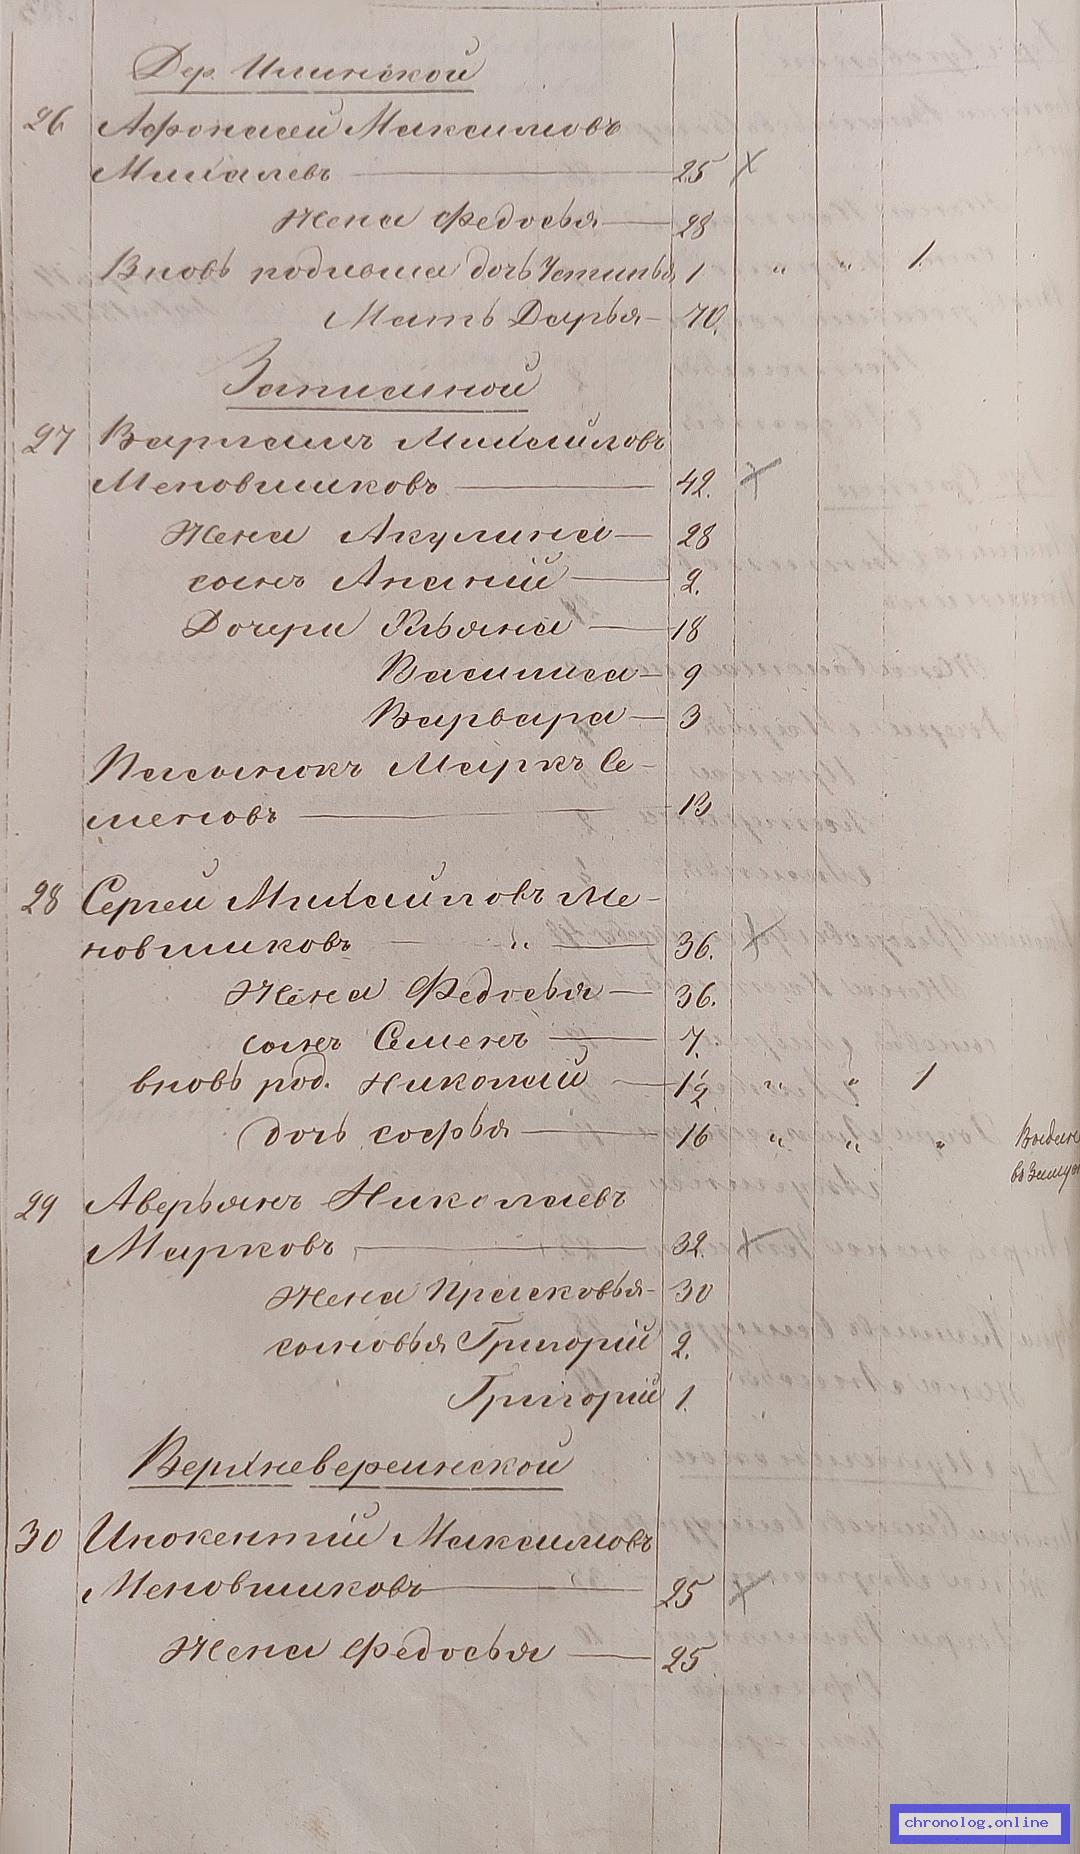 Дер. Илинской
26 Афонасей Максимовъ
Михалевъ 25 х
Жена Федосья 28
Вновь родивша дочь Устинья 1 " " 1.
Мать Дарья 70.
Записиной
27 Варламъ Михайловъ
Меновшиковъ 42. х
Жена Акулина 28
сынъ Ананий 2.
Дочери Ульяна 18
Василиса 9
Варвара 3
Пасынокъ Маркъ Се-
меновъ 13
28 Сергей Михайловъ Ме-
новшиковъ " 36. х
Жена Федосья 36.
сынъ Семенъ 7.
вновь род. Николай 1/2 " " 1
дочь софья 16 " " "
Выдана
въ Замуж
29 Аверьянъ Николаевъ
Марковъ 32. х
Жена Прасковья 30
сыновья Григорий 2.
Григорий 1.
Верхневереинской
30 Инокентий Максимовъ
Меновшиковъ 25 х
Жена Федосья 25
chronolog.online